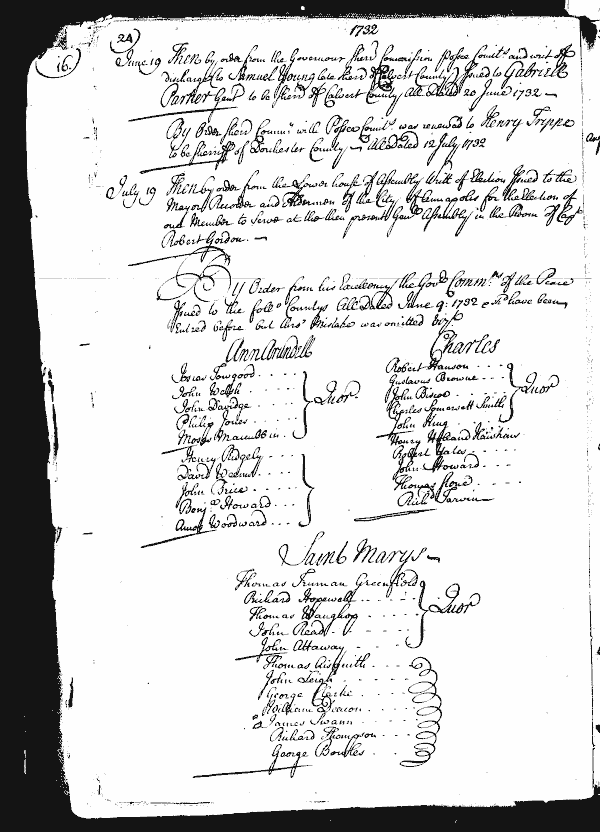 1732
24
16.
June 19 Then by order from the Governour Sherr Commission Posse Comit.s and writ of
discharge to Samuel Young late Sherr of Calvert County Issued to Gabriell
Parker Gent to be Sherr of Calvert County All Dated 20 June 1732 —
By Order Sherr Comm.n with Posse Comit.s was renewed to Henry Trippe
to be Sherriff of Dorchester County — All dated 12 July 1732
July 19 Then by order from the Lower house of Assembly Writt of Election Issued to the
Mayor Recorder and Aldermen of the City of Annapolis for the Election of
one Member to Serve at the then present Gen.l Assembly in the Room of Cap.t
Robert Gordon. —
By Order from his Excellency the Gov.r Comm.ns of the Peace
Issued to the foll.o Countys All Dated June 9: 1732 have been
Entred before but thro' Mistake was omitted
AnnArundell
Josias Towgood
John Welsh
John Davidge
Philip Jones
Moses Maccubbin
Quor.
Henry Ridgely
David Weems
John Brice
Benj.a Howard
Amos Woodward
Charles
Robert Hanson
Gustavus Browne
John Briscoe
Charles Somersett Smith
John King
Quor
Henry Holland Hawkins
Robert Yates
John Howard
Thomas Stone
Rich.d Tarvin
Saint Marys —
Thomas Truman Greenfield
Richard Hopewell
Thomas Waughop
John Read
John Attaway
Quor
Thomas Aisquith
John Leigh
George Clarke
William Deacon
James Swann
Richard Thompson
George Bowles